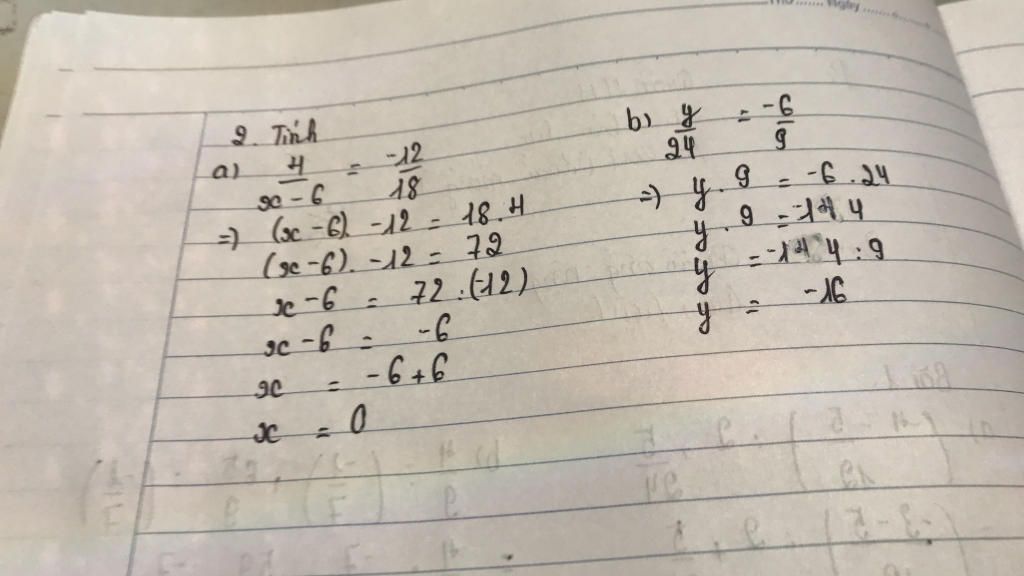 Thứ ...... Ngày ......
2. Tính
a) 4/(x-6) = -12/18
=) (x-6). -12 = 18.4
(x-6). -12 = 72
x-6 = 72:(-12)
x-6 = -6
x = -6+6
x = 0
b) y/24 = -6/9
=) y.9 = -6.24
y.9 = -144
y = -144:9
y = -16